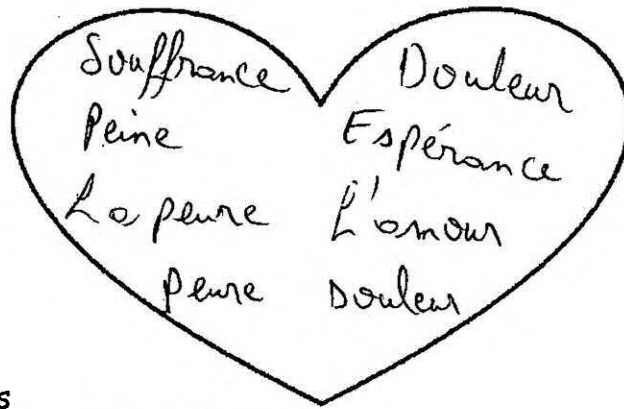 Souffrance Douleur
Peine Espérance
La peure L'amour
peure Douleur
s